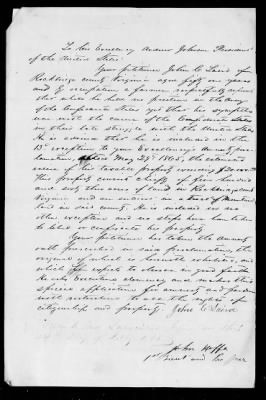 To His Excellency Andrew Johnson President
of the United States
Your petitioner John C Laird of
Rockbridge county Virginia aged fifty one years
and by occupation a farmer respectfully represents
that while he held no position in the Army
of the Confederate States yet that his sympathies
was with the cause of the Confederate States
in their late struggle with the United States
He is advised that he is included in the
13th exception to your Excellency's Amnesty proc-
lamation, May 29th 1865, the estimated
value of his taxable property exceeding $20,000
This property consists chiefly of five hundred
and sixty three acres of land in Rockbridge county
Virginia and an undivided
land in said county. He is included in no
other exception and no steps have been taken
to libel or confiscate his property.
Your petitioner has taken the Amnesty
oath prescribed in said proclamation, the
original of which is herewith exhibited, and
which he expects to observe in good faith
He asks Executive clemency and makes this
special application for amnesty and pardon
with restoration to all the rights of
citizenship and property. John C Laird
John
1st Lieut and Pro Mar